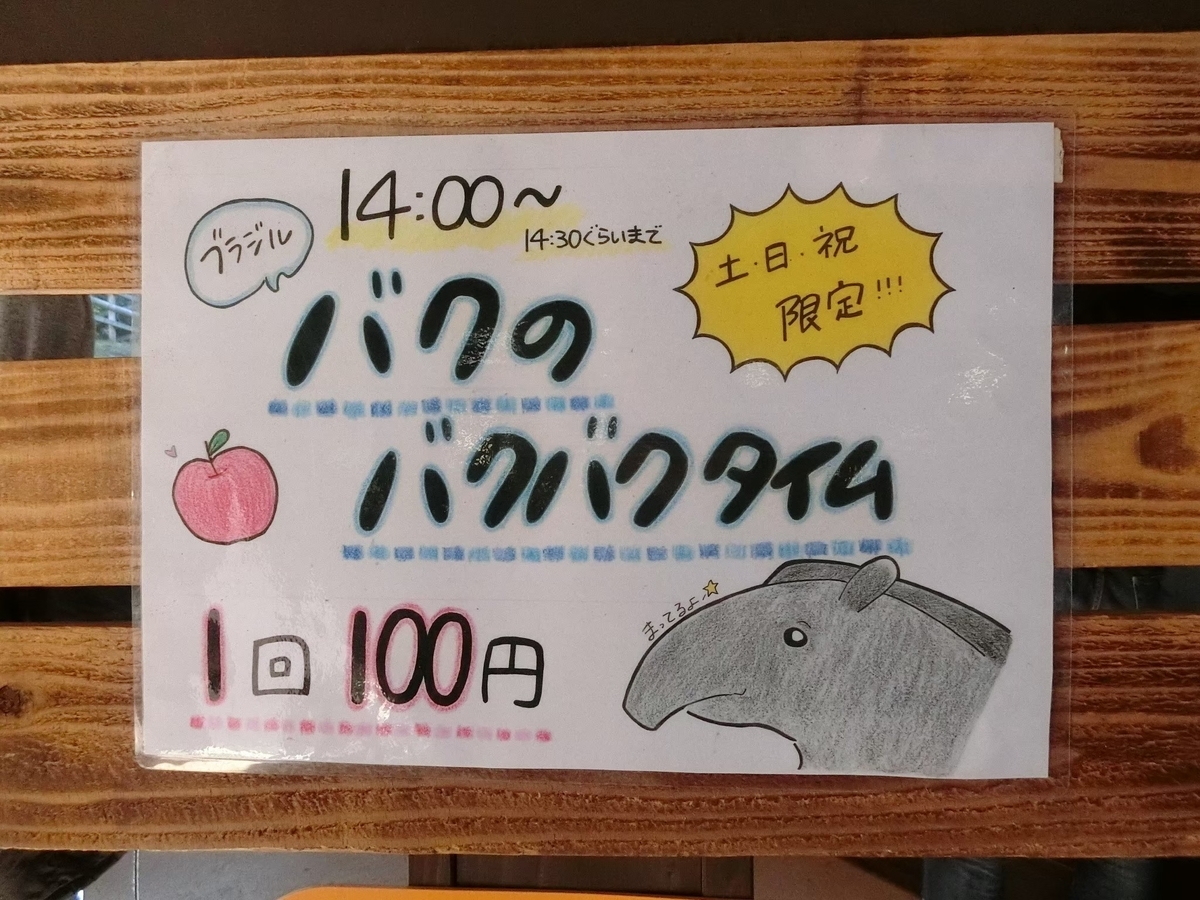 14:00～
14:30ぐらいまで
ブラジル
バクの
バクバクタイム
土・日・祝
限定!!!
まってるよ☆
1回100円